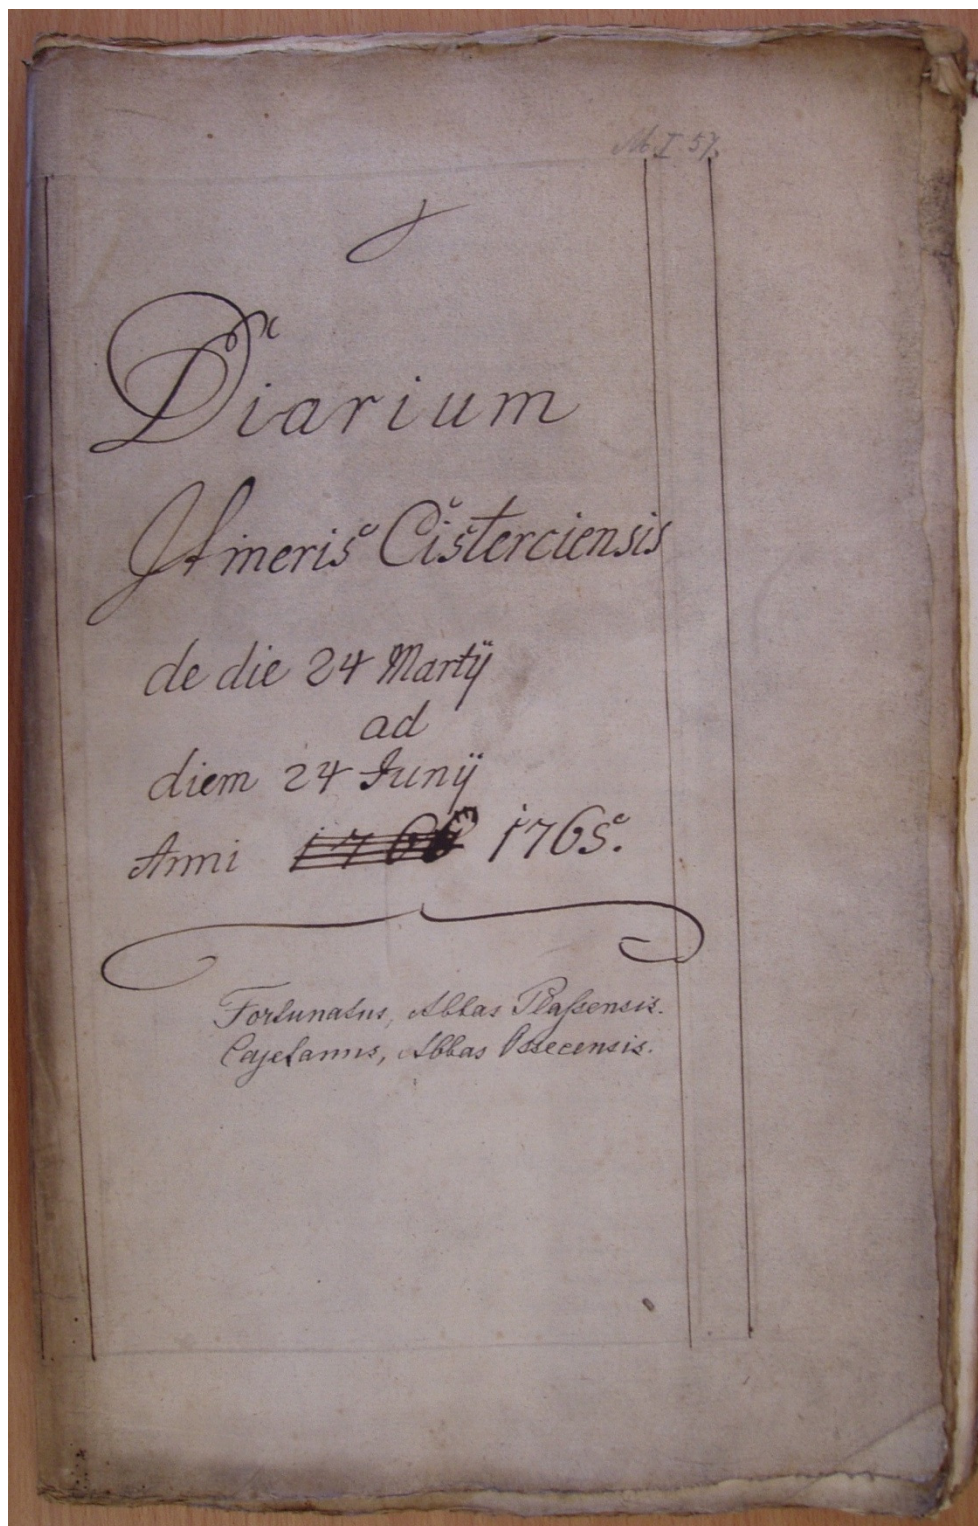 M I 57.
Diarium
Itineris Cisterciensis
de die 24 Martÿ
ad
diem 24 Junÿ
Anni 1765.
Fortunatus, Abbas Plassensis.
Cajetanus, Abbas Ossecensis.